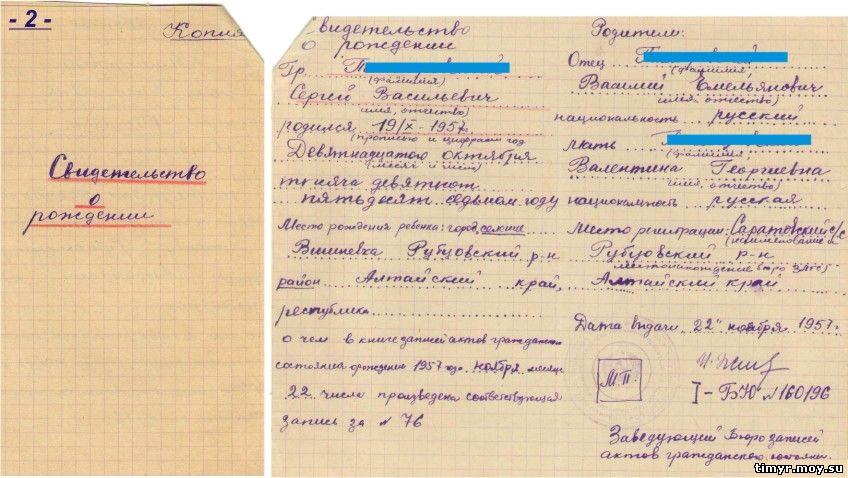 - 2 -
Копия
Свидетельство
о
рождении
Свидетельство
о рождении
Гр.
(фамилия)
Сергей Васильевич
(имя, отчество)
родился 19/X - 1957г.
(прописью и цифрами год
Девятнадцатого октября
(месяц и число)
тысяча девятьсот
пятьдесят седьмом году
Место рождения ребенка: город, селение
Вишневка Рубцовский р-н
район Алтайский край,
республика
о чем в книге записей актов гражданского
состояния о рождении 1957 года ноября месяца
22 числа произведена соответствующая
запись за № 76
Родители:
Отец
(фамилия,
Василий Емельянович
имя, отчество)
национальность русский
Мать
(фамилия,
Валентина Георгиевна
имя, отчество)
национальность русская
Место регистрации: Саратовский с/с
(наименование и
Рубцовский р-н
местонахождение бюро ЗАГС)
Алтайский край
Дата выдачи „22" ноября 1957г.
М.П.
I - БЮ № 160196
Заведующий Бюро записей
актов гражданского состояния.
timyr.moy.su